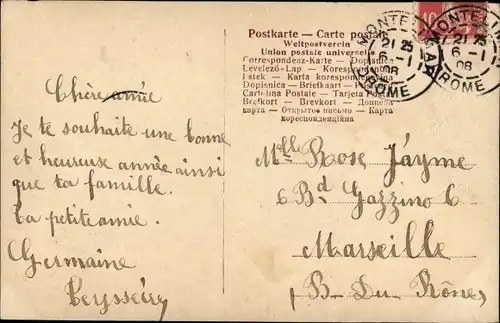 Postkarte - Carte postale
Weltpostverein
Union postale universelle
Correspondenz-Karte - Dopisnica
Levelező-Lap - Korespondenč
Karta korespondencyjna
Dopisnica - Briefkaart -
Cartolina Postale - Tarjeta Pos
Brefkort - Brevkort - Дописна
карта - Открытое письмо - Карта
кореспонденційна
MONTELIMAR
21 25
6 - 1
08
DROME
MONTELIMAR
21 25
6 - 1
08
DROME
10
Chère amie
Je te souhaite une bonne
et heureuse année ainsi
que ta famille.
Ta petite amie.
Germaine
Mlle Rose Jayme
6 Bd Gazzino 6
Marseille
(B. Du Rône)